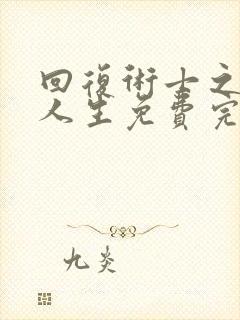 回復術士之
人生免費完
九炎